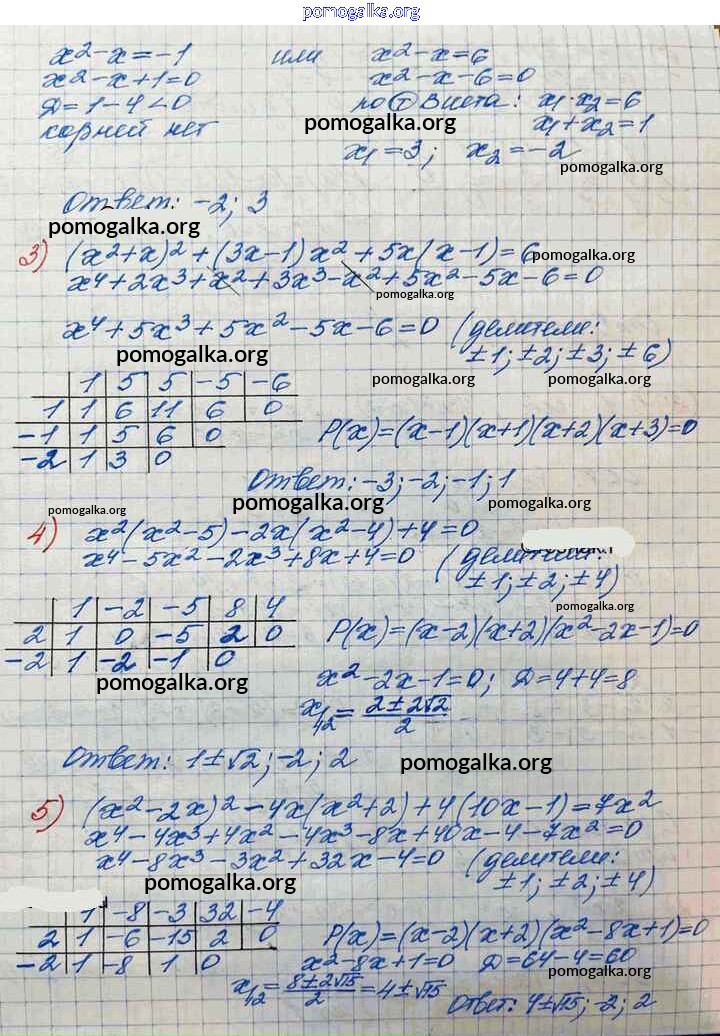 pomogalka.org
x²-x=-1 или x²-x=6
x²-x+1=0 x²-x-6=0
Д=1-4<0 по Т Виета: x₁·x₂=6
корней нет pomogalka.org x₁+x₂=1
x₁=3; x₂=-2
pomogalka.org
Ответ: -2; 3
pomogalka.org
3) (x²+x)²+(3x-1)x²+5x(x-1)=6
pomogalka.org
x⁴+2x³+x²+3x³-x²+5x²-5x-6=0
pomogalka.org
x⁴+5x³+5x²-5x-6=0 (делители:
pomogalka.org ±1; ±2; ±3; ±6)
pomogalka.org pomogalka.org
1 5 5 -5 -6
1 1 6 11 6 0
-1 1 5 6 0 P(x)=(x-1)(x+1)(x+2)(x+3)=0
-2 1 3 0
Ответ: -3; -2; -1; 1
pomogalka.org pomogalka.org pomogalka.org
4) x²(x²-5)-2x(x²-4)+4=0
x⁴-5x²-2x³+8x+4=0 (делители:
±1; ±2; ±4)
pomogalka.org
1 -2 -5 8 4
2 1 0 -5 2 0 P(x)=(x-2)(x+2)(x²-2x-1)=0
-2 1 -2 -1 0
pomogalka.org x²-2x-1=0; Д=4+4=8
x₁,₂=2±2√2/2
Ответ: 1±√2; -2; 2 pomogalka.org
5) (x²-2x)²-4x(x²+2)+4(10x-1)=7x²
x⁴-4x³+4x²-4x³-8x+40x-4-7x²=0
x⁴-8x³-3x²+32x-4=0 (делители:
pomogalka.org ±1; ±2; ±4)
1 -8 -3 32 -4
2 1 -6 -15 2 0 P(x)=(x-2)(x+2)(x²-8x+1)=0
-2 1 -8 1 0 x²-8x+1=0 Д=64-4=60
pomogalka.org
x₁,₂=8±2√15/2=4±√15 Ответ: 4±√15; -2; 2
pomogalka.org